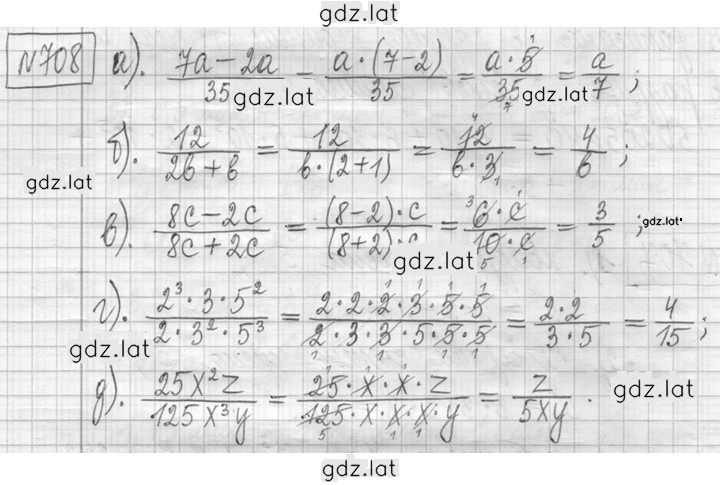 gdz.lat
№708 а). (7a - 2a)/35 = (a · (7-2))/35 = (a · 5)/35 = a/7 ;
gdz.lat gdz.lat
б). 12/(2b + b) = 12/(b · (2+1)) = 12/(b · 3) = 4/b ;
gdz.lat
в). (8c - 2c)/(8c + 2c) = ((8-2) · c)/((8+2) · c) = (6 · c)/(10 · c) = 3/5 ; gdz.lat
gdz.lat
г). (2³ · 3 · 5²)/(2 · 3² · 5³) = (2 · 2 · 2 · 3 · 5 · 5)/(2 · 3 · 3 · 5 · 5 · 5) = (2 · 2)/(3 · 5) = 4/15 ;
gdz.lat
д). (25x²z)/(125x³y) = (25 · x · x · z)/(125 · x · x · x · y) = z/(5xy) .
gdz.lat
gdz.lat